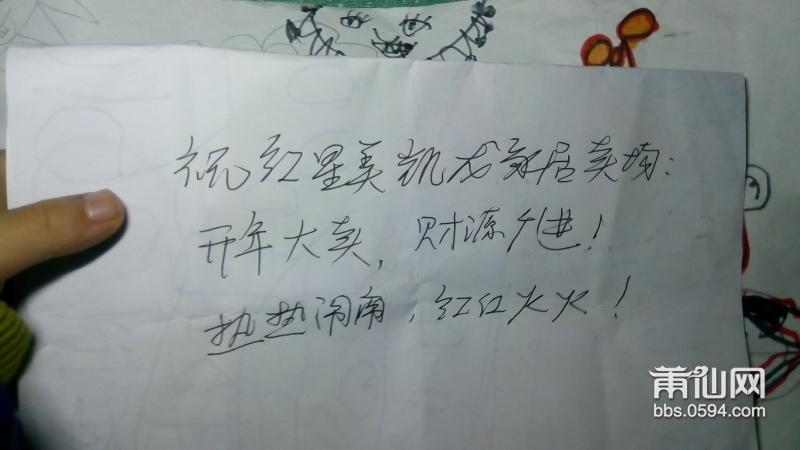 祝红星美凯龙家居卖场：
开年大卖，财源广进！
热热闹闹，红红火火！
莆仙网
bbs.0594.com